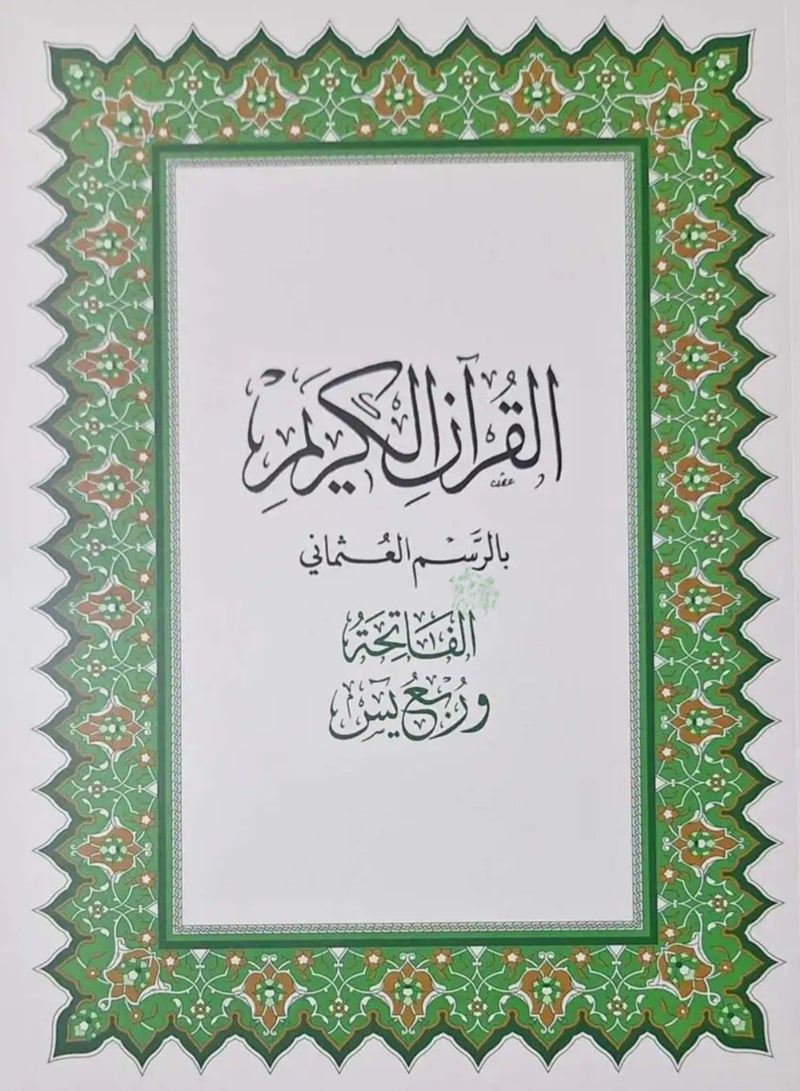 القُرْآنُ الْكَرِيْمُ
بالرَّسْمِ العُثماني
الفَاتِحَةُ
وَرُبْعُ يٓسٓ